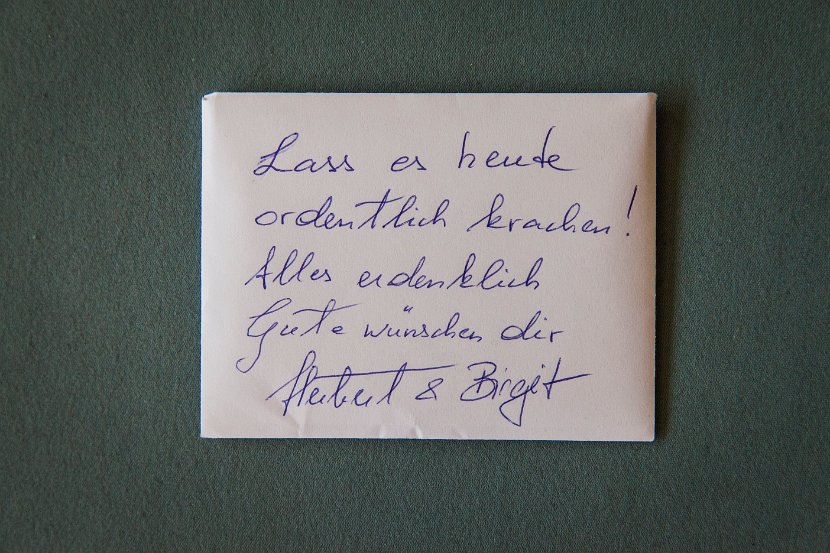 Lass es heute
ordentlich krachen!
Alles erdenklich
Gute wünschen dir
Herbert & Birgit